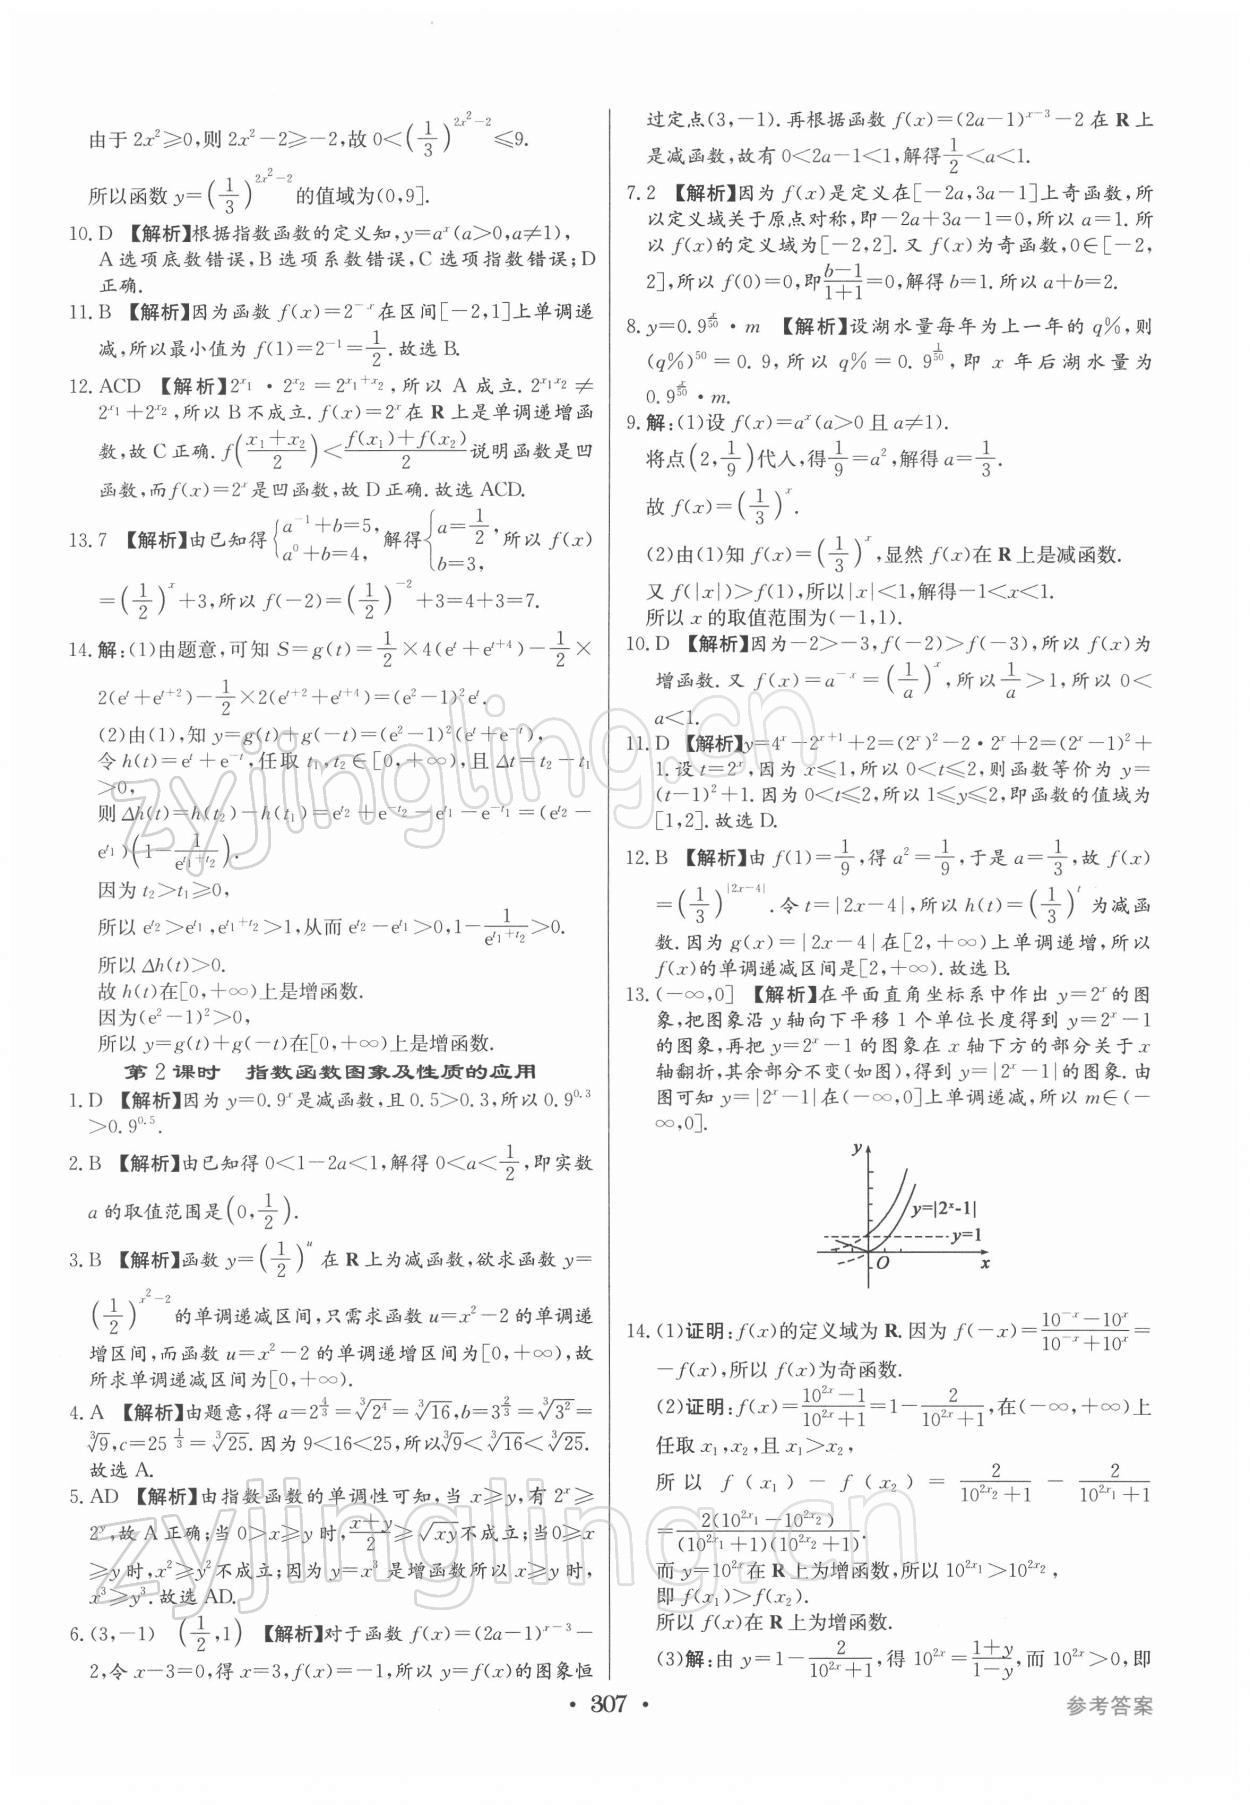 由于 2x²≥0,则 2x²-2≥-2,故 0<(1/3)^(2x²-2)≤9.
所以函数 y=(1/3)^(2x²-2) 的值域为(0,9].
10. D 【解析】根据指数函数的定义知,y=a^x(a>0,a≠1),
A 选项底数错误,B 选项系数错误,C 选项指数错误;D
正确.
11. B 【解析】因为函数 f(x)=2^(-x) 在区间[-2,1]上单调递
减,所以最小值为 f(1)=2^(-1)=1/2.故选 B.
12. ACD 【解析】2^(x₁)·2^(x₂)=2^(x₁+x₂),所以 A 成立. 2^(x₁x₂)≠
2^(x₁)+2^(x₂),所以 B 不成立. f(x)=2^x 在 R 上是单调递增函
数,故 C 正确. f((x₁+x₂)/2)<(f(x₁)+f(x₂))/2 说明函数是凹
函数,而 f(x)=2^x 是凹函数,故 D 正确.故选 ACD.
13. 7 【解析】由已知得{a^(-1)+b=5, a^0+b=4, 解得{a=1/2, b=3, 所以 f(x)
=(1/2)^x+3,所以 f(-2)=(1/2)^(-2)+3=4+3=7.
14. 解:(1)由题意,可知 S=g(t)=1/2×4(e^t+e^(t+4))-1/2×
2(e^t+e^(t+2))-1/2×2(e^(t+2)+e^(t+4))=(e²-1)²e^t.
(2)由(1),知 y=g(t)+g(-t)=(e²-1)²(e^t+e^(-t)),
令 h(t)=e^t+e^(-t),任取 t₁,t₂∈[0,+∞),且 Δt=t₂-t₁
>0,
则 Δh(t)=h(t₂)-h(t₁)=e^(t₂)+e^(-t₂)-e^(t₁)-e^(-t₁)=(e^(t₂)-
e^(t₁))(1-1/e^(t₁+t₂)).
因为 t₂>t₁≥0,
所以 e^(t₂)>e^(t₁),e^(t₁+t₂)>1,从而 e^(t₂)-e^(t₁)>0,1-1/e^(t₁+t₂)>0.
所以 Δh(t)>0.
故 h(t)在[0,+∞)上是增函数.
因为(e²-1)²>0,
所以 y=g(t)+g(-t)在[0,+∞)上是增函数.
第 2 课时 指数函数图象及性质的应用
1. D 【解析】因为 y=0.9^x 是减函数,且 0.5>0.3,所以 0.9^0.3
>0.9^0.5.
2. B 【解析】由已知得 0<1-2a<1,解得 0<a<1/2,即实数
a 的取值范围是(0,1/2).
3. B 【解析】函数 y=(1/2)^u 在 R 上为减函数,欲求函数 y=
(1/2)^(x²-2) 的单调递减区间,只需求函数 u=x²-2 的单调递
增区间,而函数 u=x²-2 的单调递增区间为[0,+∞),故
所求单调递减区间为[0,+∞).
4. A 【解析】由题意,得 a=2^(4/3)=∛2⁴=∛16,b=3^(2/3)=∛3²=
∛9,c=25^(1/3)=∛25.因为 9<16<25,所以∛9<∛16<∛25.
故选 A.
5. AD 【解析】由指数函数的单调性可知,当 x≥y,有 2^x≥
2^y,故 A 正确;当 0>x≥y 时,(x+y)/2≥√xy不成立;当0≥x
≥y 时,x²≥y²不成立;因为 y=x³ 是增函数所以 x≥y 时,
x³≥y³.故选 AD.
6. (3,-1) (1/2,1) 【解析】对于函数 f(x)=(2a-1)^(x-3)-
2,令 x-3=0,得 x=3,f(x)=-1,所以 y=f(x)的图象恒
过定点(3,-1).再根据函数 f(x)=(2a-1)^(x-3)-2 在 R 上
是减函数,故有 0<2a-1<1,解得1/2<a<1.
7. 2 【解析】因为 f(x)是定义在[-2a,3a-1]上奇函数,所
以定义域关于原点对称,即-2a+3a-1=0,所以 a=1.所
以 f(x)的定义域为[-2,2].又 f(x)为奇函数,0∈[-2,
2],所以 f(0)=0,即(b-1)/(1+1)=0,解得 b=1.所以 a+b=2.
8. y=0.9^(x/50)·m 【解析】设湖水量每年为上一年的 q%,则
(q%)^50=0.9,所以 q%=0.9^(1/50),即 x 年后湖水量为
0.9^(x/50)·m.
9. 解:(1)设 f(x)=a^x(a>0 且 a≠1).
将点(2,1/9)代入,得1/9=a²,解得 a=1/3.
故 f(x)=(1/3)^x.
(2)由(1)知 f(x)=(1/3)^x,显然 f(x)在 R 上是减函数.
又 f(|x|)>f(1),所以|x|<1,解得-1<x<1.
所以 x 的取值范围为(-1,1).
10. D 【解析】因为-2>-3,f(-2)>f(-3),所以 f(x)为
增函数.又 f(x)=a^(-x)=(1/a)^x,所以1/a>1,所以 0<
a<1.
11. D 【解析】y=4^x-2^(x+1)+2=(2^x)²-2·2^x+2=(2^x-1)²+
1.设 t=2^x,因为 x≤1,所以 0<t≤2,则函数等价为 y=
(t-1)²+1.因为 0<t≤2,所以 1≤y≤2,即函数的值域为
[1,2].故选 D.
12. B 【解析】由 f(1)=1/9,得 a²=1/9,于是 a=1/3,故 f(x)
=(1/3)^|2x-4|.令 t=|2x-4|,所以 h(t)=(1/3)^t 为减函
数.因为 g(x)=|2x-4|在[2,+∞)上单调递增,所以
f(x)的单调递减区间是[2,+∞).故选 B.
13. (-∞,0] 【解析】在平面直角坐标系中作出 y=2^x 的图
象,把图象沿 y 轴向下平移 1 个单位长度得到 y=2^x-1
的图象,再把 y=2^x-1 的图象在 x 轴下方的部分关于 x
轴翻折,其余部分不变(如图),得到 y=|2^x-1|的图象.由
图可知 y=|2^x-1|在(-∞,0]上单调递减,所以 m∈(-
∞,0].
y
y=|2^x-1|
y=1
O
x
14. (1)证明:f(x)的定义域为 R.因为 f(-x)=(10^(-x)-10^x)/(10^(-x)+10^x)=
-f(x),所以 f(x)为奇函数.
(2)证明:f(x)=(10^(2x)-1)/(10^(2x)+1)=1-2/(10^(2x)+1),在(-∞,+∞)上
任取 x₁,x₂,且 x₁>x₂,
所以 f(x₁)-f(x₂)=2/(10^(2x₂)+1)-2/(10^(2x₁)+1)
=2(10^(2x₁)-10^(2x₂))/((10^(2x₁)+1)(10^(2x₂)+1)).
而 y=10^(2x)在 R 上为增函数,所以 10^(2x₁)>10^(2x₂),
即 f(x₁)>f(x₂).
所以 f(x)在 R 上为增函数.
(3)解:由 y=1-2/(10^(2x)+1),得 10^(2x)=(1+y)/(1-y),而 10^(2x)>0,即
• 307 •
参考答案
zyjingling.cn
zyjingling.cn